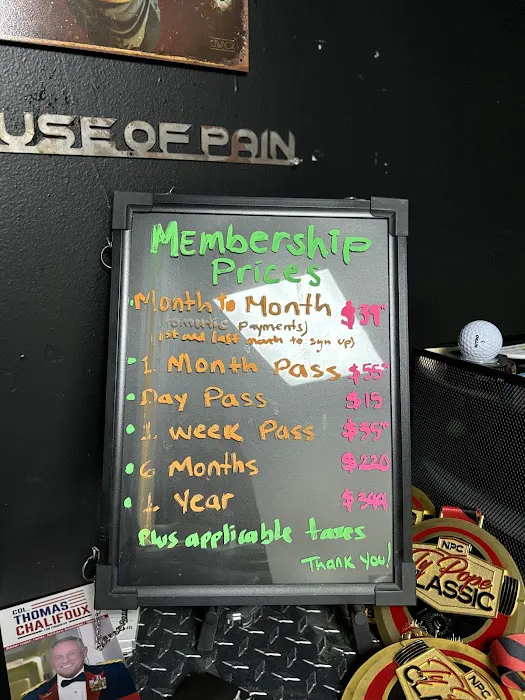 USE OF PAIN
Membership
Prices
Month to Month $39
Payments)
1st and last month to sign up)
1 Month Pass $55
Day Pass $15
1 week Pass $35
6 Months $220
1 Year $399
Plus applicable taxes
Thank you!
NPC
Ty Pope
CLASSIC
COL.
THOMAS
CHALIFOUX